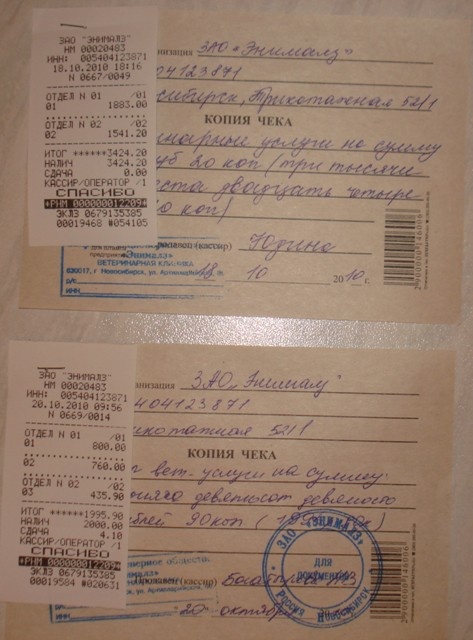 ЗАО "ЭНИМАЛЗ"
НМ 00020483
ИНН: 005404123871
18.10.2010 18:16
N 0667/0049
ОТДЕЛ N 01 /01
01 1883.00
ОТДЕЛ N 02 /02
02 1541.20
ИТОГ ******3424.20
НАЛИЧ 3424.20
СДАЧА 0.00
КАССИР/ОПЕРАТОР /1
СПАСИБО
*РНМ 000000012209*
ЭКЛЗ 0679135385
00019468 #054105
низация ЗАО «Энималз»
04123871
сибирск, Трикотажная 52/1
КОПИЯ ЧЕКА
нарные услуги на сумму
уб 20 коп (три тысячи
ста двадцать четыре
0 коп)
(кассир) Юдина
18 10 2010 г.
«Энималз»
ВЕТЕРИНАРНАЯ КЛИНИКА
630017, г. Новосибирск, ул.
ИНН
ЗАО "ЭНИМАЛЗ"
НМ 00020483
ИНН: 005404123871
20.10.2010 09:56
N 0669/0014
ОТДЕЛ N 01 /01
01 800.00
02 760.00
ОТДЕЛ N 02 /02
03 435.90
ИТОГ ******1995.90
НАЛИЧ 2000.00
СДАЧА 4.10
КАССИР/ОПЕРАТОР /1
СПАСИБО
*РНМ 000000012209*
ЭКЛЗ 0679135385
00019584 #020631
низация ЗАО „Энималз"
404123871
икотажная 52/1
КОПИЯ ЧЕКА
вет. услуги на сумму:
девятьсот девяносто
блей 90коп
ЗАО «ЭНИМАЛЗ»
ДЛЯ
ДОКУМЕНТОВ
РОССИЯ НОВОСИБИРСК
(кассир)
20 октября
ИНН